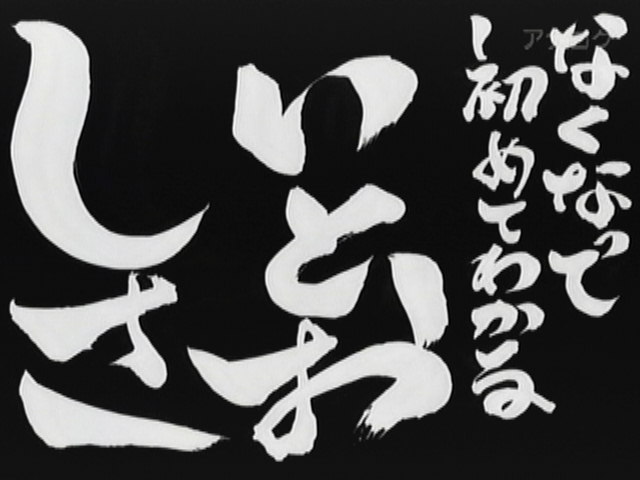 アナログ
なくなって
、初めてわかる
いとお
しさ